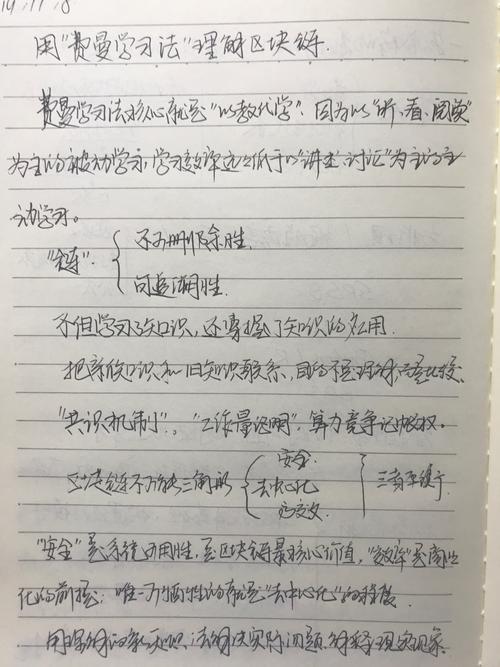 19.11.8
用"费曼学习法"理解区块链.
费曼学习法核心就是"以教代学". 因为以"听、看、阅读"
为主的被动学习,学习效率远低于以"讲述、讨论"为主的主
动学习。
"链": 不可删除性.
可追溯性.
不但学习了知识,还掌握了知识的应用.
把新知识和旧知识联系,目的不是理解,而是比较.
"共识机制"。"工作量证明". 算力竞争记账权。
区块链不可能三角形 安全. 去中心化 高效 三者平衡
"安全"是系统可用性,是区块链最核心价值,"效率"是商业
化的前提;唯一可牺牲的就是"去中心化"的程度.
用理解的新知识,去解决实际问题,解释现实现象.